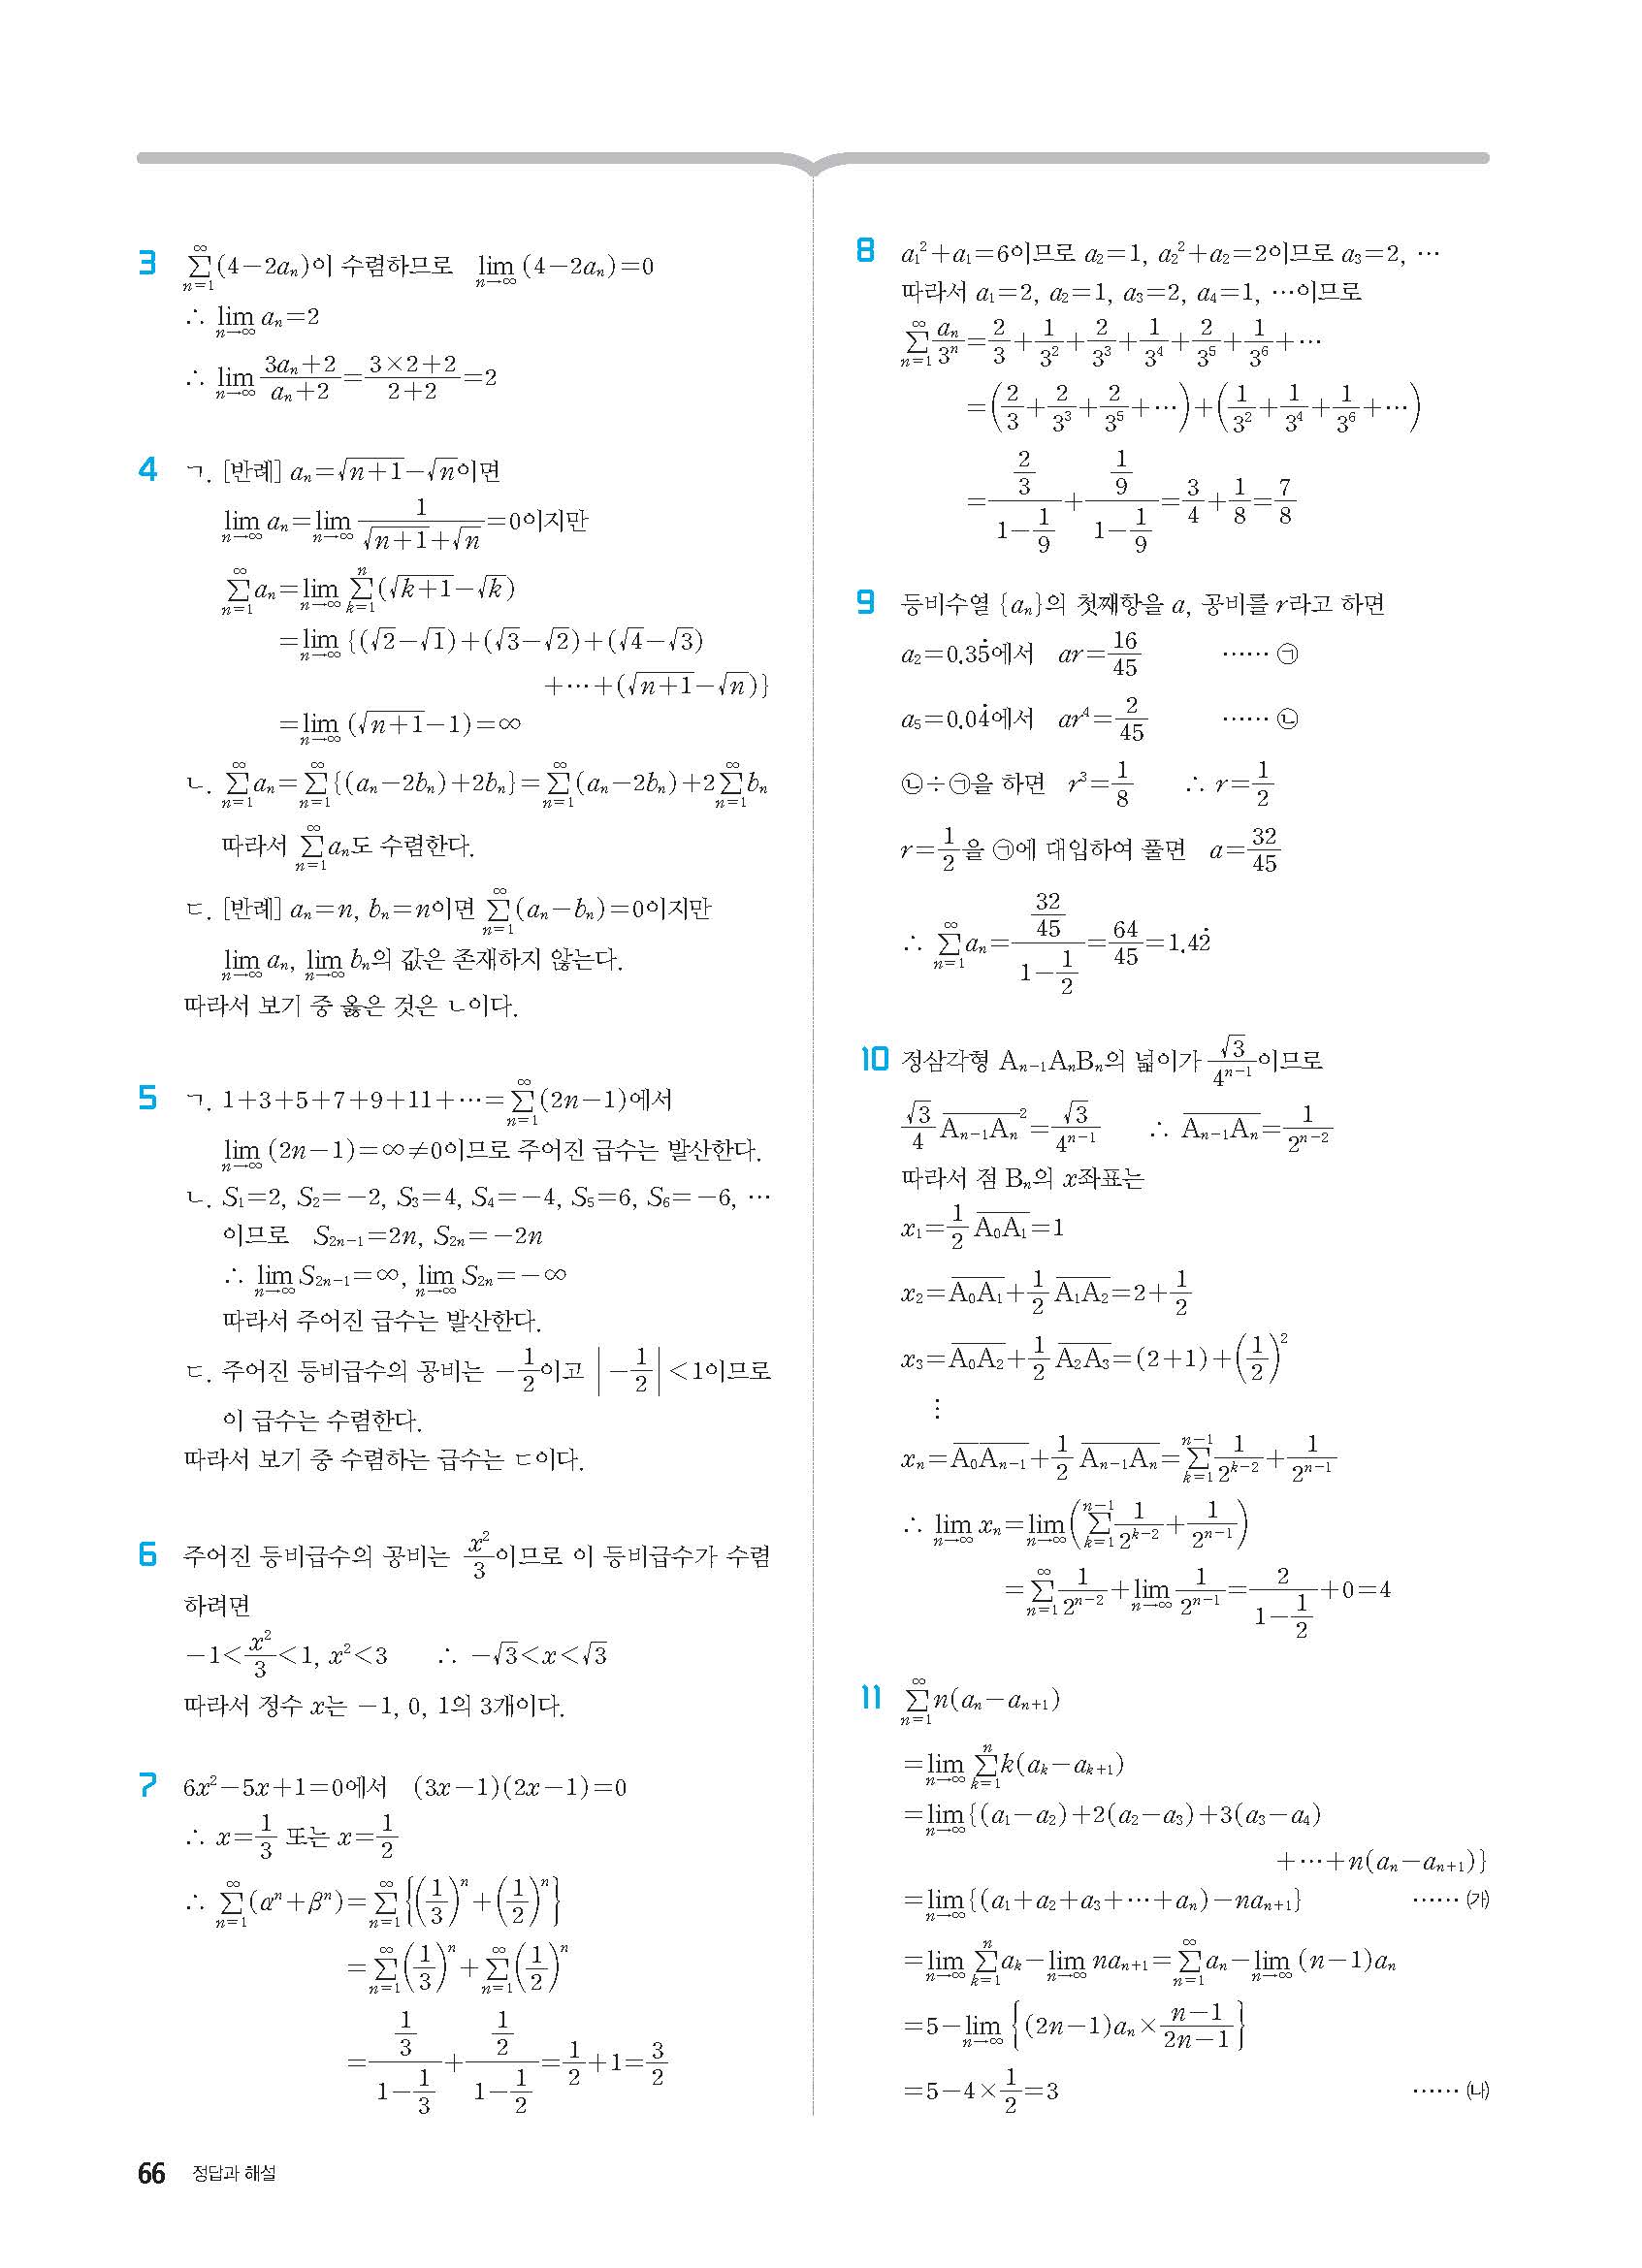 3 $\sum_{n=1}^{\infty}(4-2a_n)$이 수렴하므로 $\lim_{n\to\infty}(4-2a_n)=0$
∴ $\lim_{n\to\infty}a_n=2$
∴ $\lim_{n\to\infty}\frac{3a_n+2}{a_n+2}=\frac{3\times2+2}{2+2}=2$
4 ㄱ. [반례] $a_n=\sqrt{n+1}-\sqrt{n}$이면
$\lim_{n\to\infty}a_n=\lim_{n\to\infty}\frac{1}{\sqrt{n+1}+\sqrt{n}}=0$이지만
$\sum_{n=1}^{\infty}a_n=\lim_{n\to\infty}\sum_{k=1}^{n}(\sqrt{k+1}-\sqrt{k})$
$=\lim_{n\to\infty}\{(\sqrt{2}-\sqrt{1})+(\sqrt{3}-\sqrt{2})+(\sqrt{4}-\sqrt{3})$
$+\cdots+(\sqrt{n+1}-\sqrt{n})\}$
$=\lim_{n\to\infty}(\sqrt{n+1}-1)=\infty$
ㄴ. $\sum_{n=1}^{\infty}a_n=\sum_{n=1}^{\infty}\{(a_n-2b_n)+2b_n\}=\sum_{n=1}^{\infty}(a_n-2b_n)+2\sum_{n=1}^{\infty}b_n$
따라서 $\sum_{n=1}^{\infty}a_n$도 수렴한다.
ㄷ. [반례] $a_n=n$, $b_n=n$이면 $\sum_{n=1}^{\infty}(a_n-b_n)=0$이지만
$\lim_{n\to\infty}a_n$, $\lim_{n\to\infty}b_n$의 값은 존재하지 않는다.
따라서 보기 중 옳은 것은 ㄴ이다.
5 ㄱ. $1+3+5+7+9+11+\cdots=\sum_{n=1}^{\infty}(2n-1)$에서
$\lim_{n\to\infty}(2n-1)=\infty\neq0$이므로 주어진 급수는 발산한다.
ㄴ. $S_1=2$, $S_2=-2$, $S_3=4$, $S_4=-4$, $S_5=6$, $S_6=-6$, ⋯
이므로 $S_{2n-1}=2n$, $S_{2n}=-2n$
∴ $\lim_{n\to\infty}S_{2n-1}=\infty$, $\lim_{n\to\infty}S_{2n}=-\infty$
따라서 주어진 급수는 발산한다.
ㄷ. 주어진 등비급수의 공비는 $-\frac{1}{2}$이고 $\left|-\frac{1}{2}\right|<1$이므로
이 급수는 수렴한다.
따라서 보기 중 수렴하는 급수는 ㄷ이다.
6 주어진 등비급수의 공비는 $\frac{x^2}{3}$이므로 이 등비급수가 수렴
하려면
$-1<\frac{x^2}{3}<1$, $x^2<3$ ∴ $-\sqrt{3}<x<\sqrt{3}$
따라서 정수 $x$는 −1, 0, 1의 3개이다.
7 $6x^2-5x+1=0$에서 $(3x-1)(2x-1)=0$
∴ $x=\frac{1}{3}$ 또는 $x=\frac{1}{2}$
∴ $\sum_{n=1}^{\infty}(\alpha^n+\beta^n)=\sum_{n=1}^{\infty}\left\{\left(\frac{1}{3}\right)^n+\left(\frac{1}{2}\right)^n\right\}$
$=\sum_{n=1}^{\infty}\left(\frac{1}{3}\right)^n+\sum_{n=1}^{\infty}\left(\frac{1}{2}\right)^n$
$=\frac{\frac{1}{3}}{1-\frac{1}{3}}+\frac{\frac{1}{2}}{1-\frac{1}{2}}=\frac{1}{2}+1=\frac{3}{2}$
8 $a_1^2+a_1=6$이므로 $a_2=1$, $a_2^2+a_2=2$이므로 $a_3=2$, ⋯
따라서 $a_1=2$, $a_2=1$, $a_3=2$, $a_4=1$, ⋯이므로
$\sum_{n=1}^{\infty}\frac{a_n}{3^n}=\frac{2}{3}+\frac{1}{3^2}+\frac{2}{3^3}+\frac{1}{3^4}+\frac{2}{3^5}+\frac{1}{3^6}+\cdots$
$=\left(\frac{2}{3}+\frac{2}{3^3}+\frac{2}{3^5}+\cdots\right)+\left(\frac{1}{3^2}+\frac{1}{3^4}+\frac{1}{3^6}+\cdots\right)$
$=\frac{\frac{2}{3}}{1-\frac{1}{9}}+\frac{\frac{1}{9}}{1-\frac{1}{9}}=\frac{3}{4}+\frac{1}{8}=\frac{7}{8}$
9 등비수열 $\{a_n\}$의 첫째항을 $a$, 공비를 $r$라고 하면
$a_2=0.3\dot{5}$에서 $ar=\frac{16}{45}$ ⋯⋯ ㉠
$a_5=0.0\dot{4}$에서 $ar^4=\frac{2}{45}$ ⋯⋯ ㉡
㉡÷㉠을 하면 $r^3=\frac{1}{8}$ ∴ $r=\frac{1}{2}$
$r=\frac{1}{2}$을 ㉠에 대입하여 풀면 $a=\frac{32}{45}$
∴ $\sum_{n=1}^{\infty}a_n=\frac{\frac{32}{45}}{1-\frac{1}{2}}=\frac{64}{45}=1.4\dot{2}$
10 정삼각형 $A_{n-1}A_nB_n$의 넓이가 $\frac{\sqrt{3}}{4^{n-1}}$이므로
$\frac{\sqrt{3}}{4}\overline{A_{n-1}A_n}^2=\frac{\sqrt{3}}{4^{n-1}}$ ∴ $\overline{A_{n-1}A_n}=\frac{1}{2^{n-2}}$
따라서 점 $B_n$의 $x$좌표는
$x_1=\frac{1}{2}\overline{A_0A_1}=1$
$x_2=\overline{A_0A_1}+\frac{1}{2}\overline{A_1A_2}=2+\frac{1}{2}$
$x_3=\overline{A_0A_2}+\frac{1}{2}\overline{A_2A_3}=(2+1)+\left(\frac{1}{2}\right)^2$
⋮
$x_n=\overline{A_0A_{n-1}}+\frac{1}{2}\overline{A_{n-1}A_n}=\sum_{k=1}^{n-1}\frac{1}{2^{k-2}}+\frac{1}{2^{n-1}}$
∴ $\lim_{n\to\infty}x_n=\lim_{n\to\infty}\left(\sum_{k=1}^{n-1}\frac{1}{2^{k-2}}+\frac{1}{2^{n-1}}\right)$
$=\sum_{n=1}^{\infty}\frac{1}{2^{n-2}}+\lim_{n\to\infty}\frac{1}{2^{n-1}}=\frac{2}{1-\frac{1}{2}}+0=4$
11 $\sum_{n=1}^{\infty}n(a_n-a_{n+1})$
$=\lim_{n\to\infty}\sum_{k=1}^{n}k(a_k-a_{k+1})$
$=\lim_{n\to\infty}\{(a_1-a_2)+2(a_2-a_3)+3(a_3-a_4)$
$+\cdots+n(a_n-a_{n+1})\}$
$=\lim_{n\to\infty}\{(a_1+a_2+a_3+\cdots+a_n)-na_{n+1}\}$ ⋯⋯ ㈎
$=\lim_{n\to\infty}\sum_{k=1}^{n}a_k-\lim_{n\to\infty}na_{n+1}=\sum_{n=1}^{\infty}a_n-\lim_{n\to\infty}(n-1)a_n$
$=5-\lim_{n\to\infty}\left\{(2n-1)a_n\times\frac{n-1}{2n-1}\right\}$
$=5-4\times\frac{1}{2}=3$ ⋯⋯ ㈏
66 정답과 해설